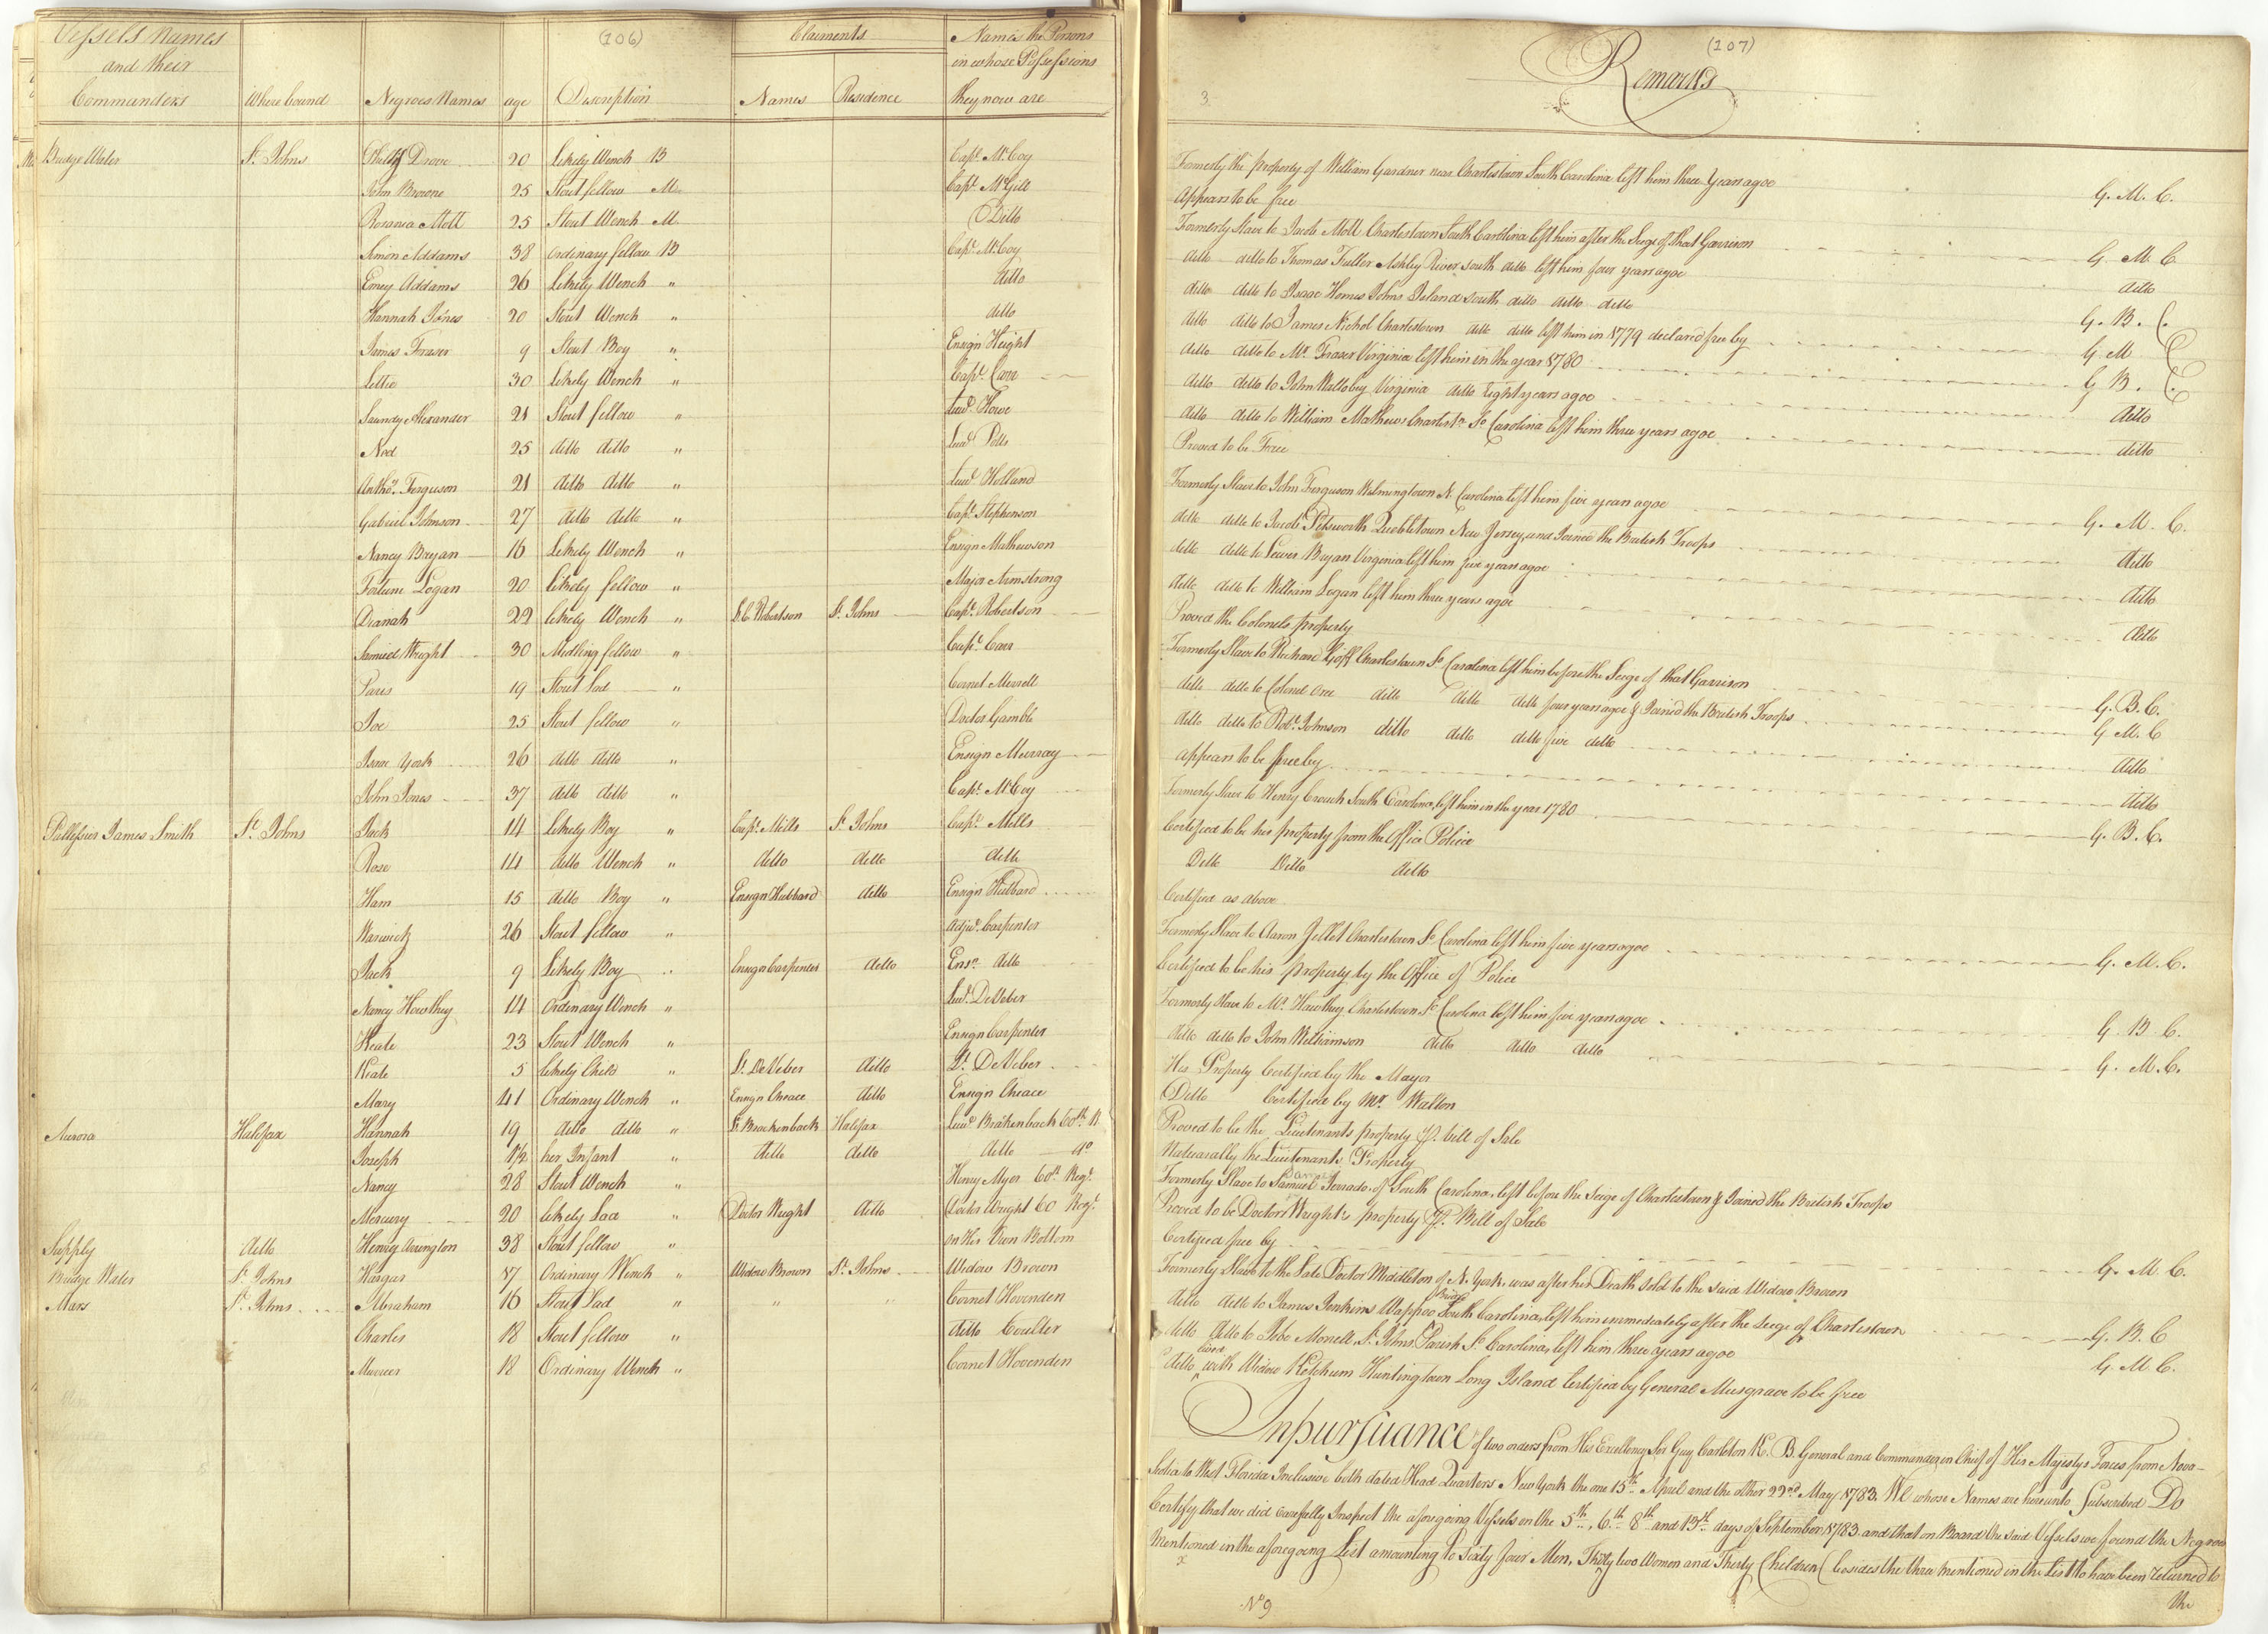 Vessels Names and their Commanders | Where bound | Negroes Names | age | (106) Description | Claiments Names | Residence | Names the Persons in whose Possessions they now are
Bridge Water | St. Johns | Drove | 20 | Likely Wench B | Capt. McCoy
John Browne | 25 | Stout fellow M. | Capt. McGill
Rosanna Mott | 25 | Stout Wench M | Ditto
Simon Addams | 38 | Ordinary fellow B | Capt. McCoy
Emey Addams | 26 | Likely Wench " | ditto
Hannah Jones | 20 | Stout Wench " | ditto
James Fraser | 9 | Stout Boy " | Ensign Height
Lettie | 30 | Likely Wench " | Capt. Carr
Saundy Alexander | 21 | Stout fellow " | Lieut. Howe
Ned | 25 | ditto ditto " | Lieut. Potts
Anthoy. Ferguson | 21 | ditto ditto " | Lieut. Holland
Gabriel Johnson | 27 | ditto ditto " | Capt. Stephenson
Nancy Bryan | 16 | Likely Wench " | Ensign Mathewson
Fortune Logan | 20 | likely fellow " | Major Armstrong
Dianah | 22 | likely Wench " | Robertson | St. Johns | Capt. Robertson
Samuel Wright | 30 | Midling fellow " | Capt. Carr
Paris | 19 | Stout Lad " | Cornet Merrell
Joe | 25 | Stout fellow " | Doctor Gamble
Isaac York | 26 | ditto ditto " | Ensign Murray
John Jones | 37 | ditto ditto " | Capt. McCoy
James Smith | St. Johns | Jack | 14 | Likely Boy " | Capt. Mills | St. Johns | Capt. Mills
Rose | 14 | ditto Wench " | ditto | ditto | ditto
Ham | 15 | ditto Boy " | Ensign Hubbard | ditto | Ensign Hubbard
Warwick | 26 | Stout fellow " | Adjut. Carpenter
Jack | 9 | Likely Boy " | Ensign Carpenter | ditto | Ensn. ditto
Nancy Howthey | 14 | Ordinary Wench " | Lieut. DeVeber
Keate | 23 | Stout Wench " | Ensign Carpenter
Keate | 5 | likely Child " | Lt. DeVeber | ditto | Lt. DeVeber
Mary | 41 | Ordinary Wench " | Ensign Cheace | ditto | Ensign Cheace
Aurora | Halifax | Hannah | 19 | ditto ditto " | Lt. Brackenback | Halifax | Lieut. Brakenback 60th R
Joseph | 1/4 | her Infant " | ditto | ditto | ditto do
Nancy | 28 | Stout Wench " | Henry Myer 60th Regt.
Mercury | 20 | likely Lad " | Doctor Wright | ditto | Doctor Wright 60 Regt.
Supply | ditto | Henry Avington | 38 | Stout fellow " | on His Own Bottom
Bridge Water | St. Johns | Hargar | 17 | Ordinary Wench " | Widow Brown | St. Johns | Widow Brown
Mars | St. Johns | Abraham | 16 | Stout Lad " | " | " | Cornet Hovenden
Charles | 18 | Stout fellow " | ditto Coulter
18 | Ordinary Wench " | Cornet Hovenden
(107)
Remarks
3
Formerly the property of William Gardner near Charlestown South Carolina left him three years agoe G. M. C.
Appears to be free
Formerly Slave to Jacob Mott Charlestown South Carolina left him after the Seige of that Garrison G. M. C.
ditto ditto to Thomas Fuller Ashley River South ditto left him four years agoe ditto
ditto ditto to Isaac Homes Johns Island South ditto ditto ditto G. B. C.
ditto ditto to James Nichol Charlestown ditto ditto left him in 1779 declared free by G. M C
ditto ditto to Mr. Fraser Virginia left him in the year 1780 G B. C.
ditto ditto to John Wallobey Virginia ditto Eight years agoe ditto
ditto ditto to William Mathews Charlestn. So Carolina left him three years agoe ditto
Proved to be Free
Formerly Slave to John Ferguson Wilmingtown N. Carolina left him five years agoe G. M. C.
ditto ditto to Jacob Petsworth Quebbletown New Jersey, and Joined the British Troops ditto
ditto ditto to Lewis Bryan Virginia left him five years agoe ditto
ditto ditto to William Logan left him three years agoe ditto
Proved the Colonels property
Formerly Slave to Richard Goff Charlestown So Carolina left him before the Seige of that Garrison G. B. C.
ditto ditto to Colonel Orre ditto ditto ditto four years agoe & Joined the British Troops G. M. C
ditto ditto to Robt. Johnson ditto ditto ditto five ditto ditto
Appears to be free by ditto
Formerly Slave to Henry Crouch South Carolina, left him in the year 1780 G. B. C.
Certified to be his property from the Office Police
Ditto Ditto ditto
Certified as above
Formerly Slave to Aaron Jellet Charlestown So Carolina left him five years agoe G. M. C.
Certified to be his property by the Office of Police
Formerly Slave to Mr. Howthey Charlestown So Carolina left him five years agoe G. B. C.
ditto ditto to John Williamson ditto ditto ditto G. M. C.
His Property Certified by the Mayor
Ditto Certified by Mr. Walton
Proved to be the Lieutenants property P. bill of Sale
Naturally the Lieutenants Property
Formerly Slave to Samuel Ferrado. of South Carolina, left before the Seige of Charlestown & Joined the British Troops
Proved to be Doctor Wrights property P. Bill of Sale
Certified free by G. M. C.
Formerly Slave to the Late Doctor Middleton of N. York. was after his Death Sold to the said Widow Brown
ditto ditto to James Jenkins Wappoo Bridge South Carolina, left him immediately after the Seige of Charlestown G. B. C
ditto ditto to Jobe Monell St. Johns Parish So Carolina, left him three years agoe G. M. C.
ditto lived with Widow Ketchum Huntingtown Long Island Certified by General Musgrave to be free
In pursuance of two orders from His Excellency Sir Guy Carleton K. B. General and Commander in Chief of His Majestys Forces from Nova-
Scotia to West Florida Inclusive both dated Head Quarters New York the one 15th April and the other 22nd May 1783. We whose Names are hereunto Subscribed Do
Certify that we did carefully Inspect the aforegoing Vessels on the 5th, 6th 8th and 13th days of September 1783. and that on Board the said Vessels we found the Negroes
Mentioned in the aforegoing List amounting to Sixty four Men, Thirty two Women and Thirty Children (besides the three mentioned in the List to have been returned to
the
No 9